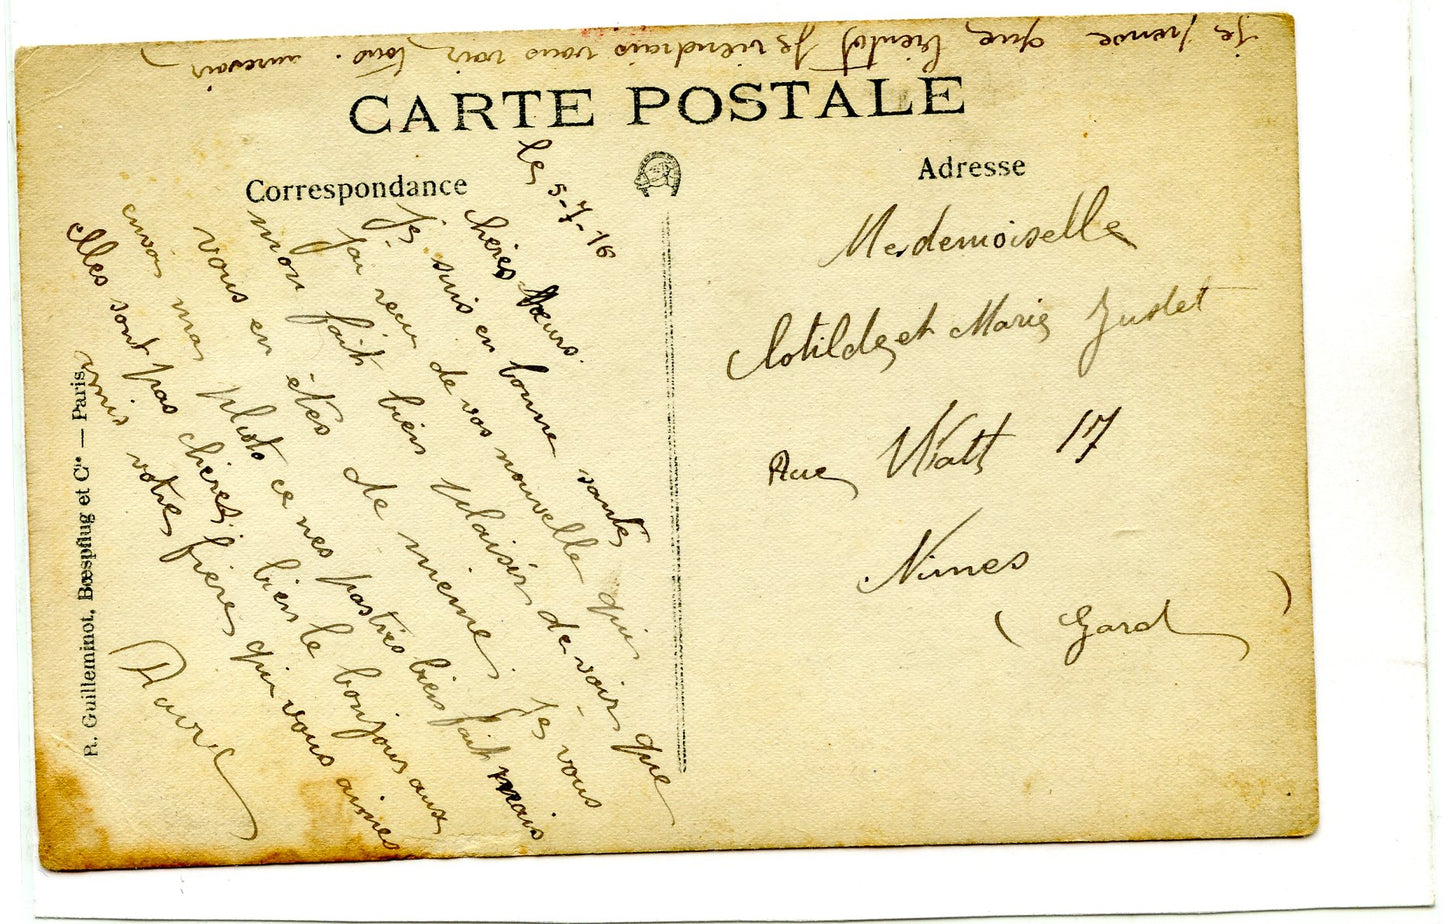 je pense que bientot je viendrais vous voir tous. aurevoir
CARTE POSTALE
Correspondance
Adresse
le 5-7-16
chères Sœurs.
Je suis en bonne santé
J'ai reçu de vos nouvelle qui
mon fait bien plaisir de voir que
vous en êtes de même, Je vous
envoi ma photo ce nes pas très bien fait mais
elles sont pas chères. bien le bonjour aux
amis votre frère qui vous aimes
Mesdemoiselle
Clotilde et Marie Justet
Rue Watt 17
Nimes
(Gard)
R. Guilleminot, Bœspflug et Cie — Paris.